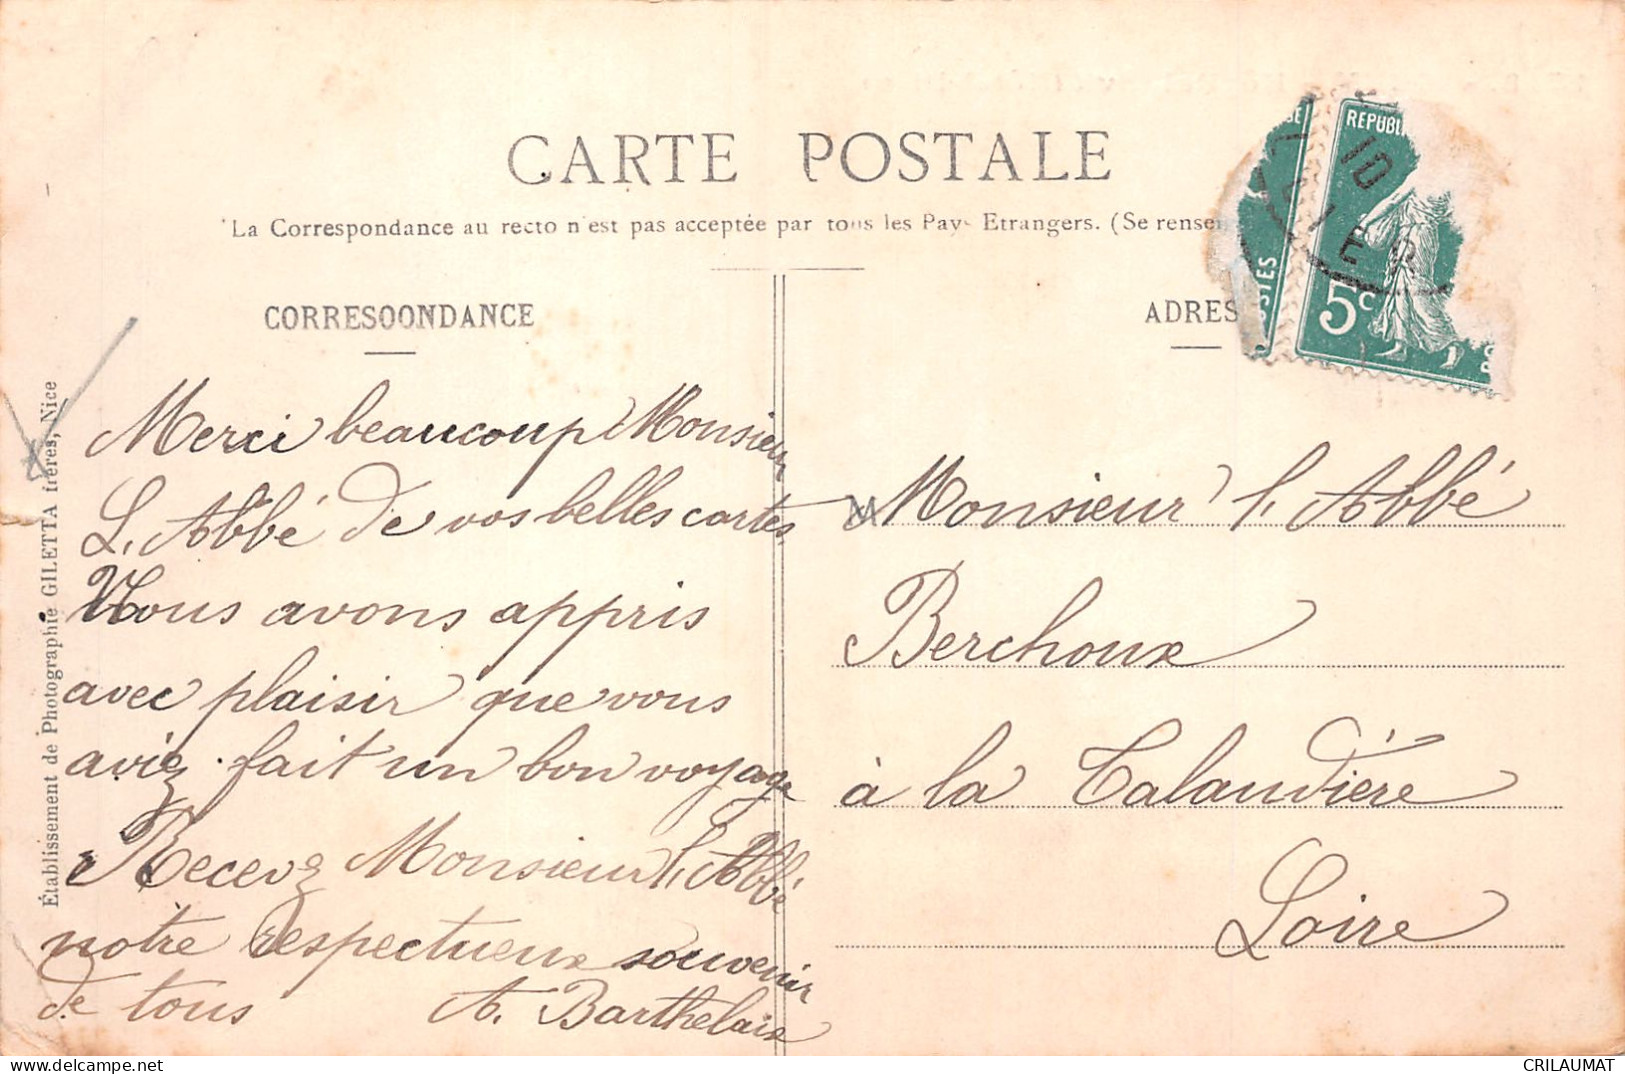 CARTE POSTALE
La Correspondance au recto n'est pas acceptée par tous les Pays Etrangers. (Se rensei
CORRESOONDANCE
Merci beaucoup Monsieur
L'Abbé de vos belles cartes,
Nous avons appris
avec plaisir que vous
aviez fait un bon voyage
Recevez Monsieur l'Abbé
notre respectueux souvenir
de tous A. Barthelaix
ADRES
REPUBL
5c
STES
10
Monsieur l'Abbé
Berchoux
à la Talaudière
Loire
Établissement de Photographie GILETTA frères, Nice
CRILAUMAT